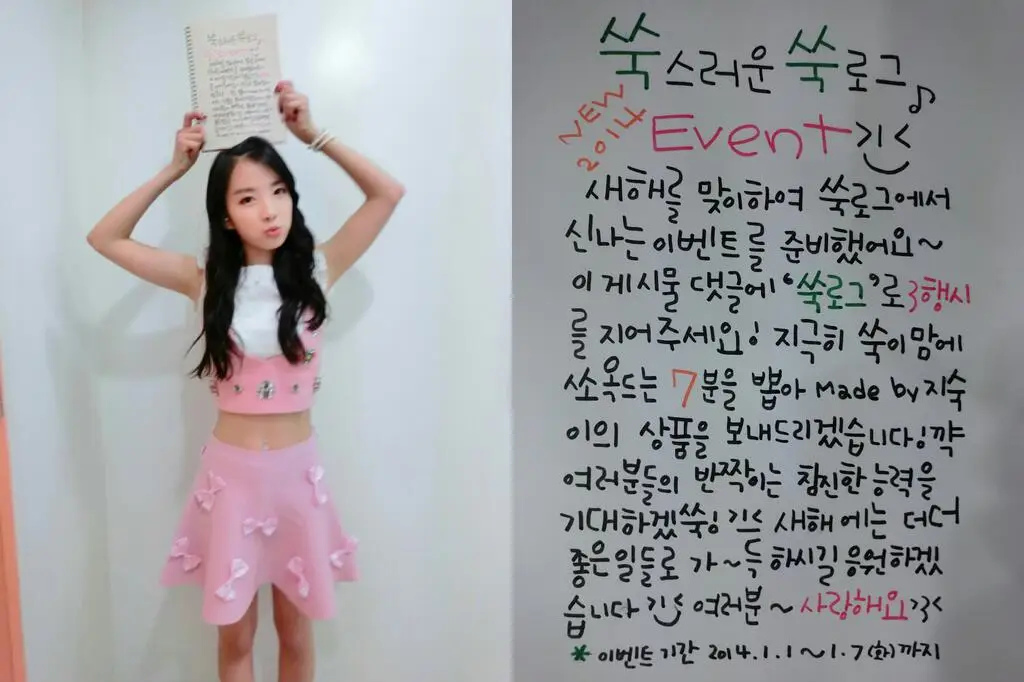 쑥스러운 쑥로그♪
NEW 2014
Event 긷
새해를 맞이하여 쑥로그에서
신나는 이벤트를 준비했어요~
이 게시물 댓글에 '쑥로그'로 3행시
를 지어주세요! 지극히 쑥이맘에
쏘옥드는 7분을 뽑아 Made by 지숙
이의 상품을 보내드리겠습니다! 꺅
여러분들의 반짝이는 참진한 능력을
기대하겠쑥! 새해에는 더더
좋은일들로 가~득 하시길 응원하겠
습니다 여러분~ 사랑해요
* 이벤트 기간 2014.1.1~1.7(화)까지